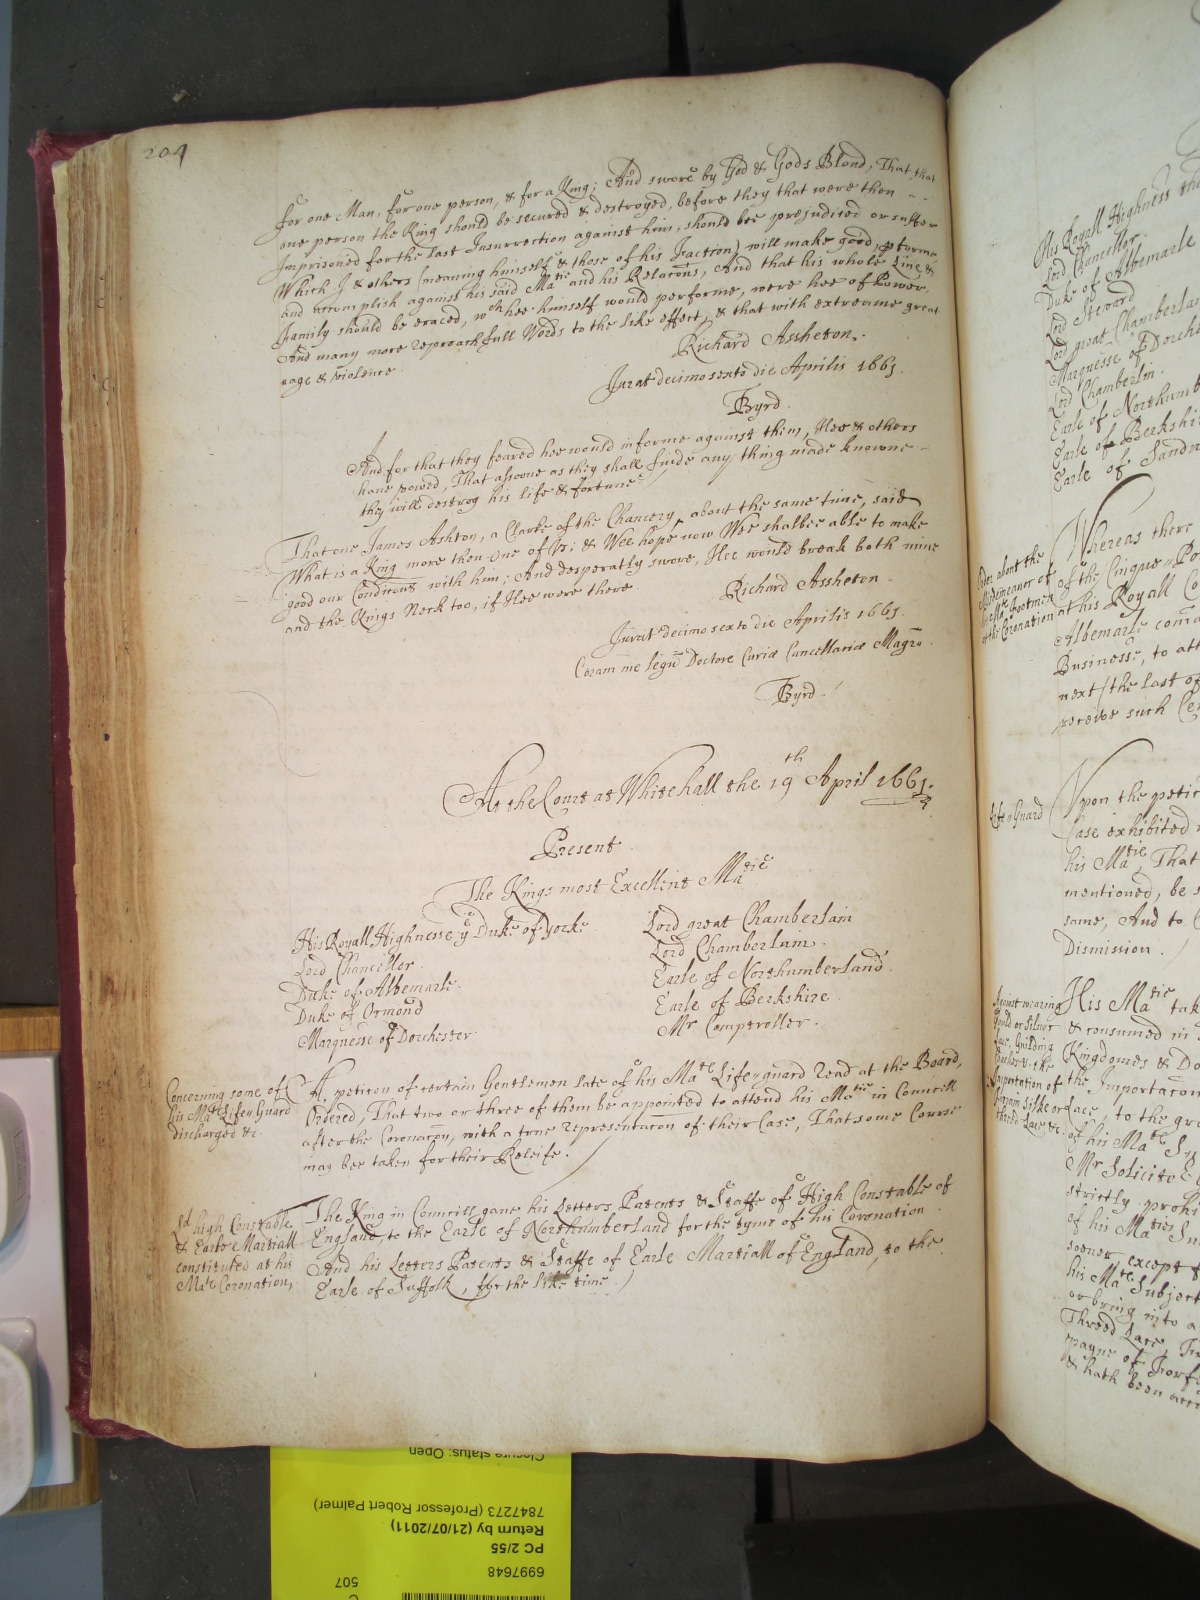 204
for one Man, for one person, & for a King; And swore by God & Gods Blond, That, that
one person the King should be secured & destroyed, before they that were then
Imprisoned for the last Insurrection against him, should bee prejudiced or suffer
Which I & others (meaning himself & those of his Faction) will make good, pforme
and accomplish against his said Matie and his Relacons, And that his whole Line &
Family should be eraced, wch hee himself would performe, were hee of Power.
And many more reproachfull Words to the like effect, & that with extreame great
rage & violence
Richard Assheton.
Jurat decimo sexto die Aprilis 1661.
Byrd.
And for that they feared hee would informe against them, Hee & others
have vowed, That assoone as they shall finde any thing made knowne
they will destroy his life & fortune
That one James Ashton, a Clarke of the Chancery, about the same time, said
What is a King more then One of Vs; & Wee hope now Wee shalbee able to make
good our Conditons with him; And desperatly swore, Hee would break both mine
and the Kings Neck too, if Hee were there.
Richard Assheton.
Jurat decimo sexto die Aprilis 1661.
Coram me legū Doctore Curiæ Cancellariæ Magro.
Byrd.
At the Court at Whitehall the 19th April 1661.
Present
The Kings most Excellent Matie
His Royall Highnesse ye Duke of Yorke
Lord Chancellor.
Duke of Albemarle.
Duke of Ormond
Marquesse of Dorchester
Lord great Chamberlain
Lord Chamberlain.
Earle of Northumberland.
Earle of Berkshire.
Mr Comptroller.
Concerning some of
his Mates Life Guard
discharged &c.
A petition of certain Gentlemen late of his Mates Life-guard read at the Board,
Ordered, That two or three of them be appointed to attend his Matie in Councill
after the Coronacon, with a true Representacon of their Case, That some Course
may bee taken for their Releife.
Ld high Constable
& Earle Martiall
constituted at his
Mates Coronation,
The King in Councill gave his Letters Patents & Staffe of High Constable of
England, to the Earle of Northumberland for the tyme of his Coronation
And his Letters Patents & Staffe of Earle Martiall of England, to the
Earle of Suffolk, for the like time.
His Royall Highness the
Lord Chancellor.
Duke of Albemarle
Lord Steward
Lord great Chamberlain
Marquesse of Dorche
Lord Chamberlin.
Earle of Northumb
Earle of Berkshir
Earle of Sandw
Order about the
Misdemeanor of
his Mates Footmen
at the Coronation
Whereas there
of the Cinque Po
at his Royall Co
Albemarle coma
Businesse, to att
next (the last of
receive such Ce
Life Guard
Vpon the petic
Case exhibited
his Matie, That
mentioned, be s
same, And to
Dismission.
Against wearing
Gould or Silver
Lace, Guilding
Coaches & the
Importation of
forraign Silke or
thred Lace &c.
His Matie tak
& consumed in
Kingdomes & Do
the Importacon
Lace, to the gre
of his Mates Su
Mr Solicito G
strictly prohi
of his Maties Su
soever, except f
his Mates Subject
or bring into a
Threed Lace,
payne of Forfe
& hath been
Closure status: Open
7847273 (Professor Robert Palmer)
Return by (21/07/2011)
PC 2/55
6997648
507